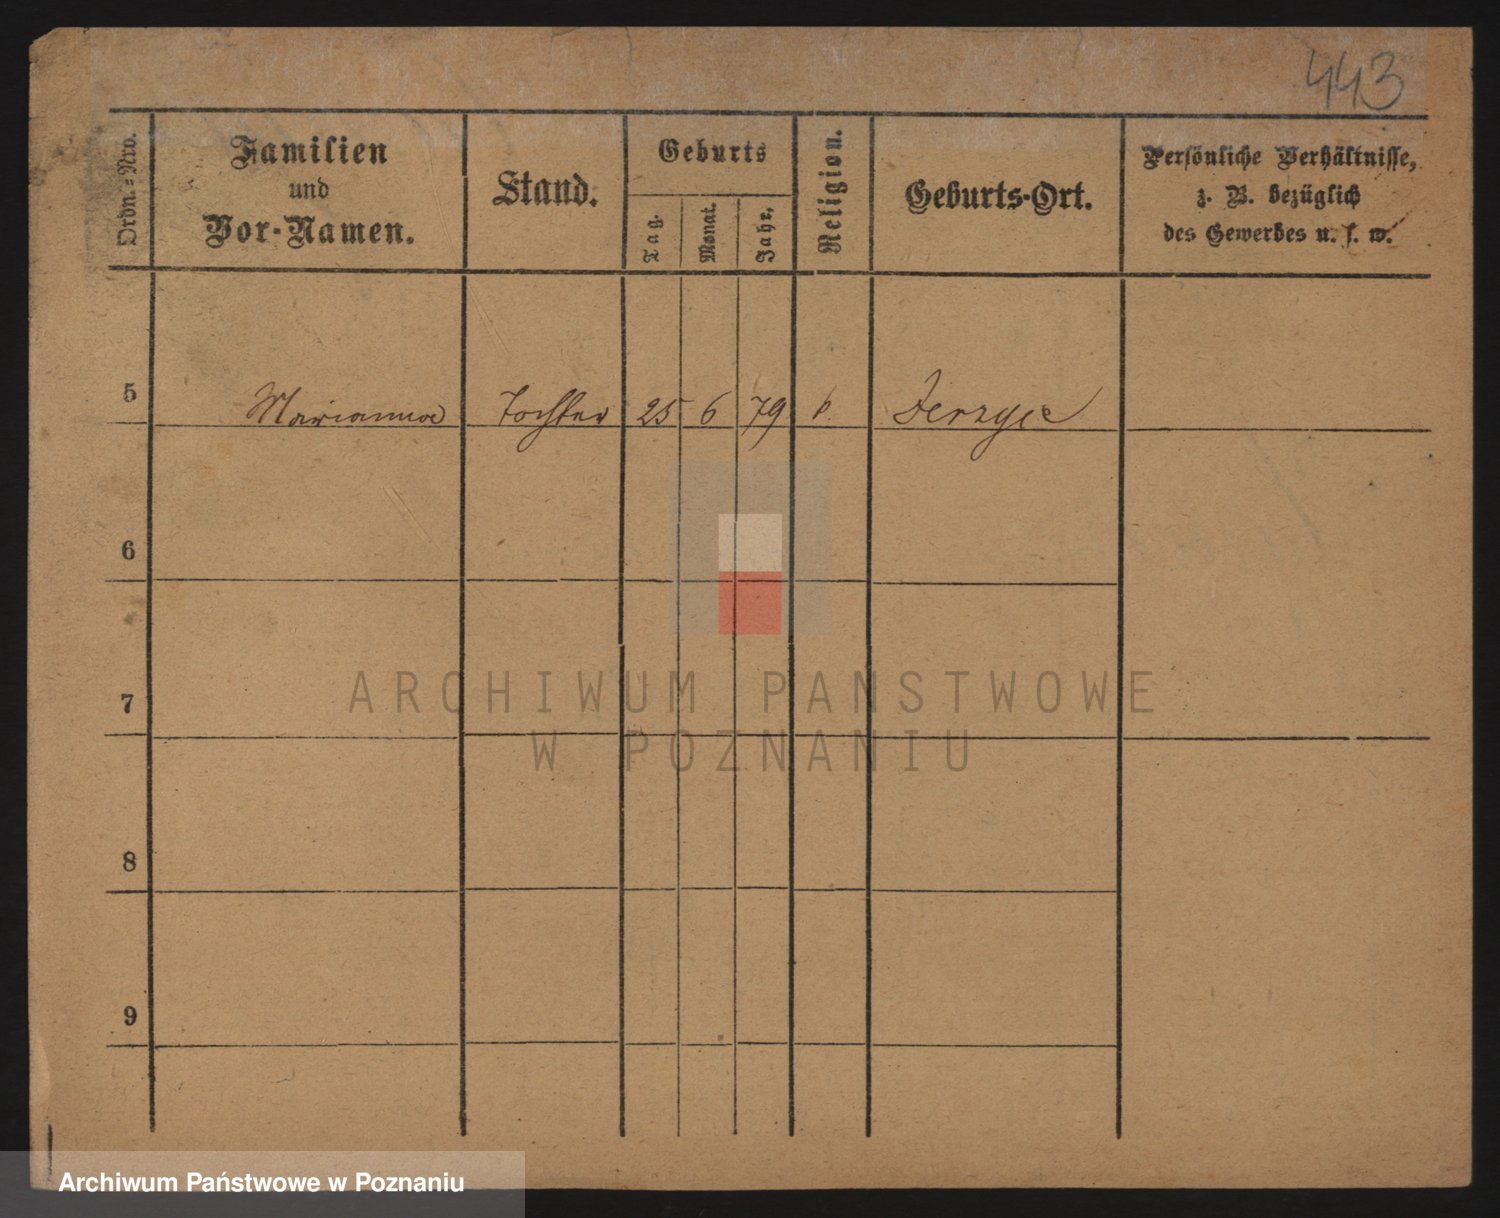 443
Ordn.=Nro.
Familien
und
Vor-Namen.
Stand.
Geburts
Tag.
Monat.
Jahr.
Religion.
Geburts-Ort.
Persönliche Verhältnisse,
z. B. bezüglich
des Gewerbes u. s. w.
5 Marianna Tochter 25 6 79 k. Jerzyce
6
7
8
9
ARCHIWUM PAŃSTWOWE
W POZNANIU
Archiwum Państwowe w Poznaniu